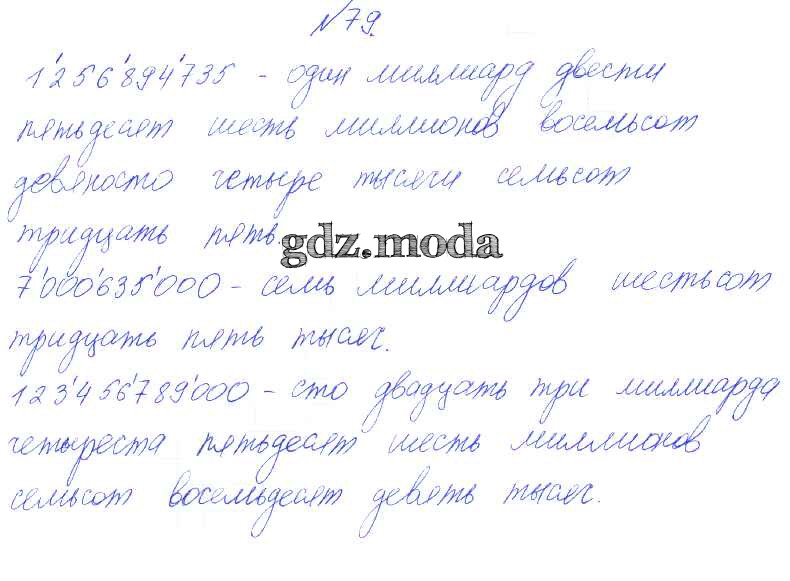 №79.
1'256'894'735 - один миллиард двести
пятьдесят шесть миллионов восемьсот
девяносто четыре тысячи семьсот
тридцать пять.
gdz.moda
7'000'635'000 - семь миллиардов шестьсот
тридцать пять тысяч.
123'456'789'000 - сто двадцать три миллиарда
четыреста пятьдесят шесть миллионов
семьсот восемьдесят девять тысяч.